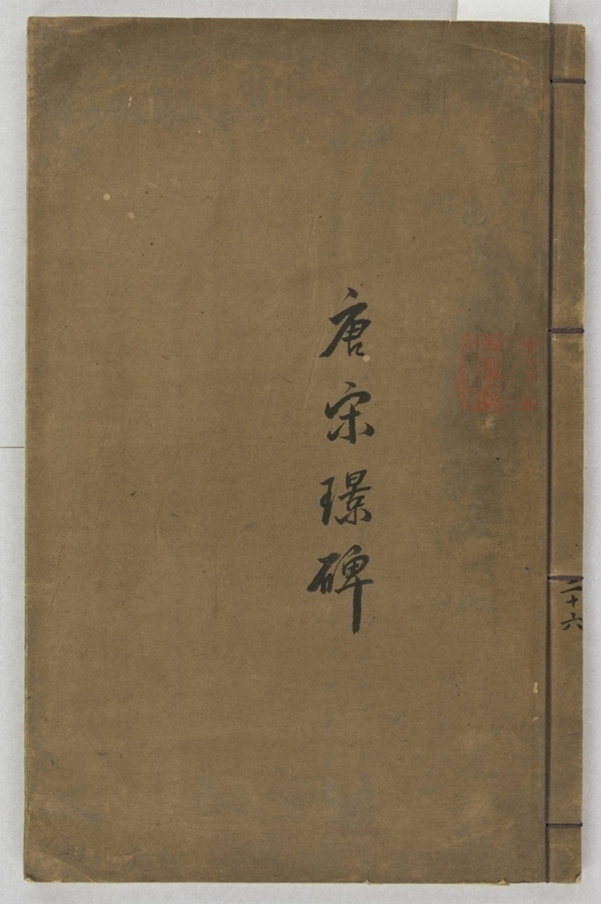 唐宋璟碑
二十六